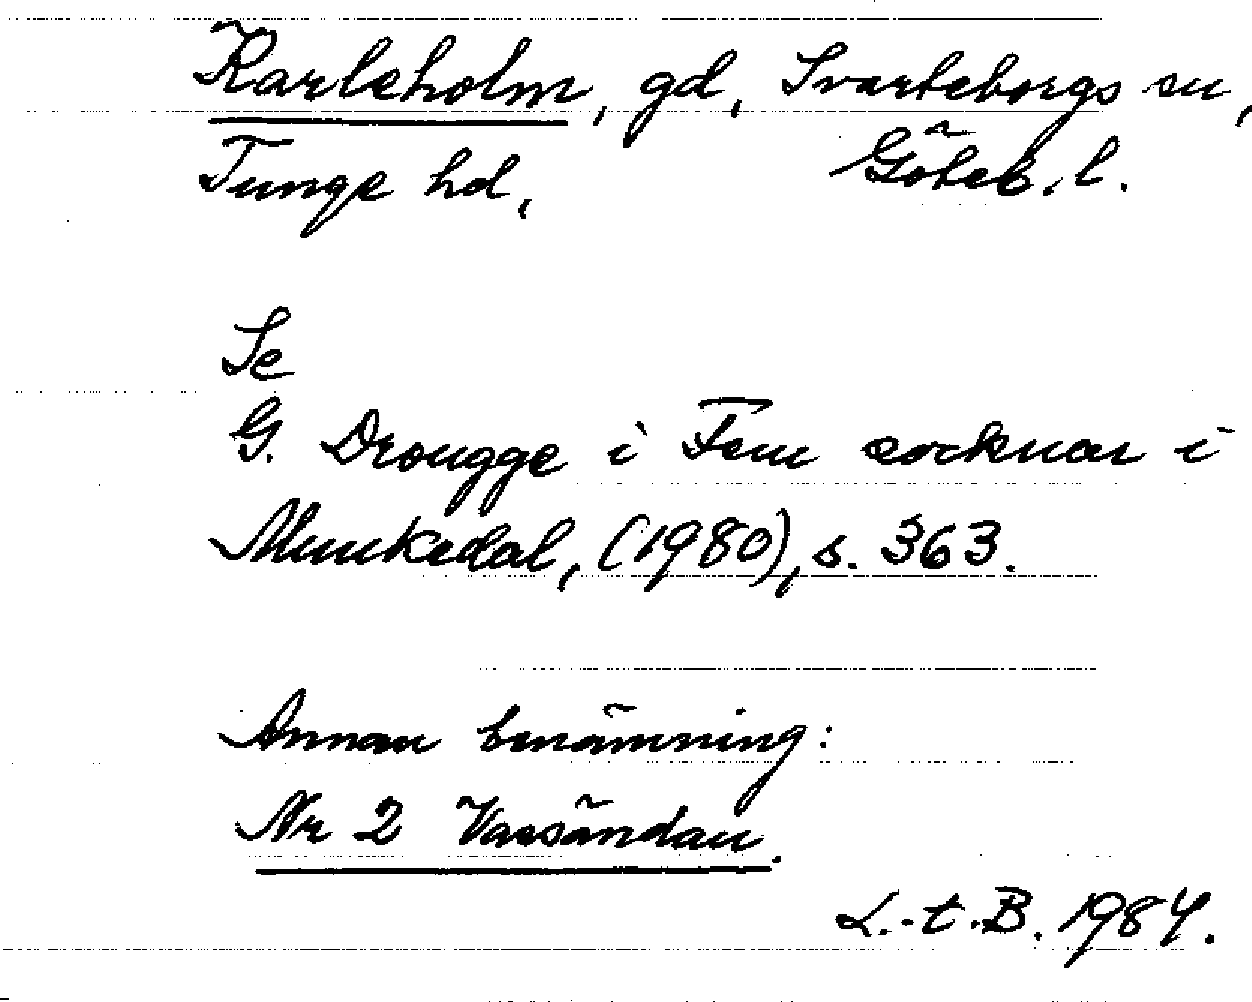 Karlsholm, gd, Svarteborgs sn,
Tunge hd, Göteb. l.
Se
G. Drougge i Fem socknar i
Munkedal, (1980), s. 363.
Annan benämning:
Nr 2 Vassändan.
L.-t. B. 1984.